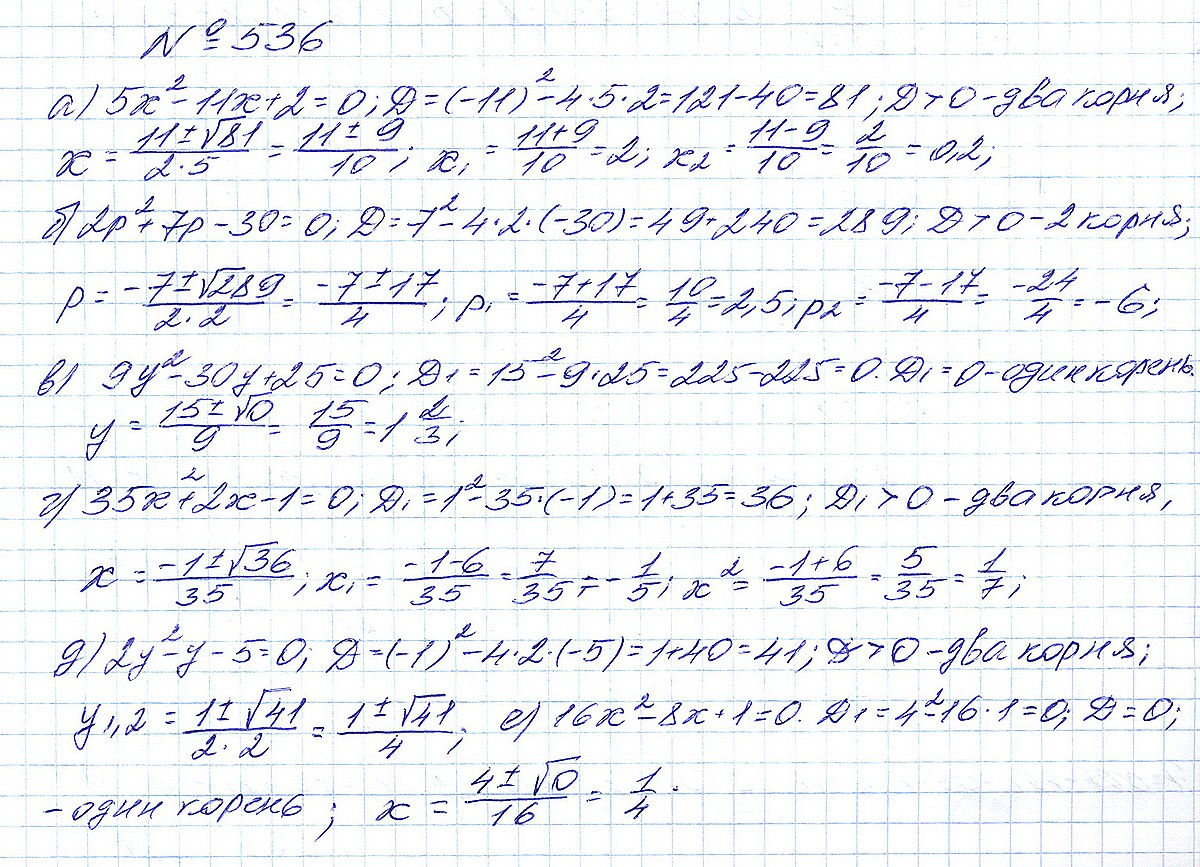 № 536
а) 5x² - 11x + 2 = 0; D = (-11)² - 4·5·2 = 121 - 40 = 81; D > 0 - два корня;
x = (11 ± √81)/(2·5) = (11 ± 9)/10; x₁ = (11+9)/10 = 2; x₂ = (11-9)/10 = 2/10 = 0,2;
б) 2p² + 7p - 30 = 0; D = 7² - 4·2·(-30) = 49 + 240 = 289; D > 0 - 2 корня;
p = (-7 ± √289)/(2·2) = (-7 ± 17)/4; p₁ = (-7+17)/4 = 10/4 = 2,5; p₂ = (-7-17)/4 = -24/4 = -6;
в) 9y² - 30y + 25 = 0; D₁ = 15² - 9·25 = 225 - 225 = 0. D₁ = 0 - один корень.
y = (15 ± √0)/9 = 15/9 = 1 2/3;
г) 35x² + 2x - 1 = 0; D₁ = 1² - 35·(-1) = 1 + 35 = 36; D₁ > 0 - два корня,
x = (-1 ± √36)/35; x₁ = (-1-6)/35 = 7/35 = -1/5; x² = (-1+6)/35 = 5/35 = 1/7;
д) 2y² - y - 5 = 0; D = (-1)² - 4·2·(-5) = 1 + 40 = 41; D > 0 - два корня;
y₁,₂ = (1 ± √41)/(2·2) = (1 ± √41)/4; е) 16x² - 8x + 1 = 0. D₁ = 4² - 16·1 = 0; D = 0;
- один корень; x = (4 ± √0)/16 = 1/4.